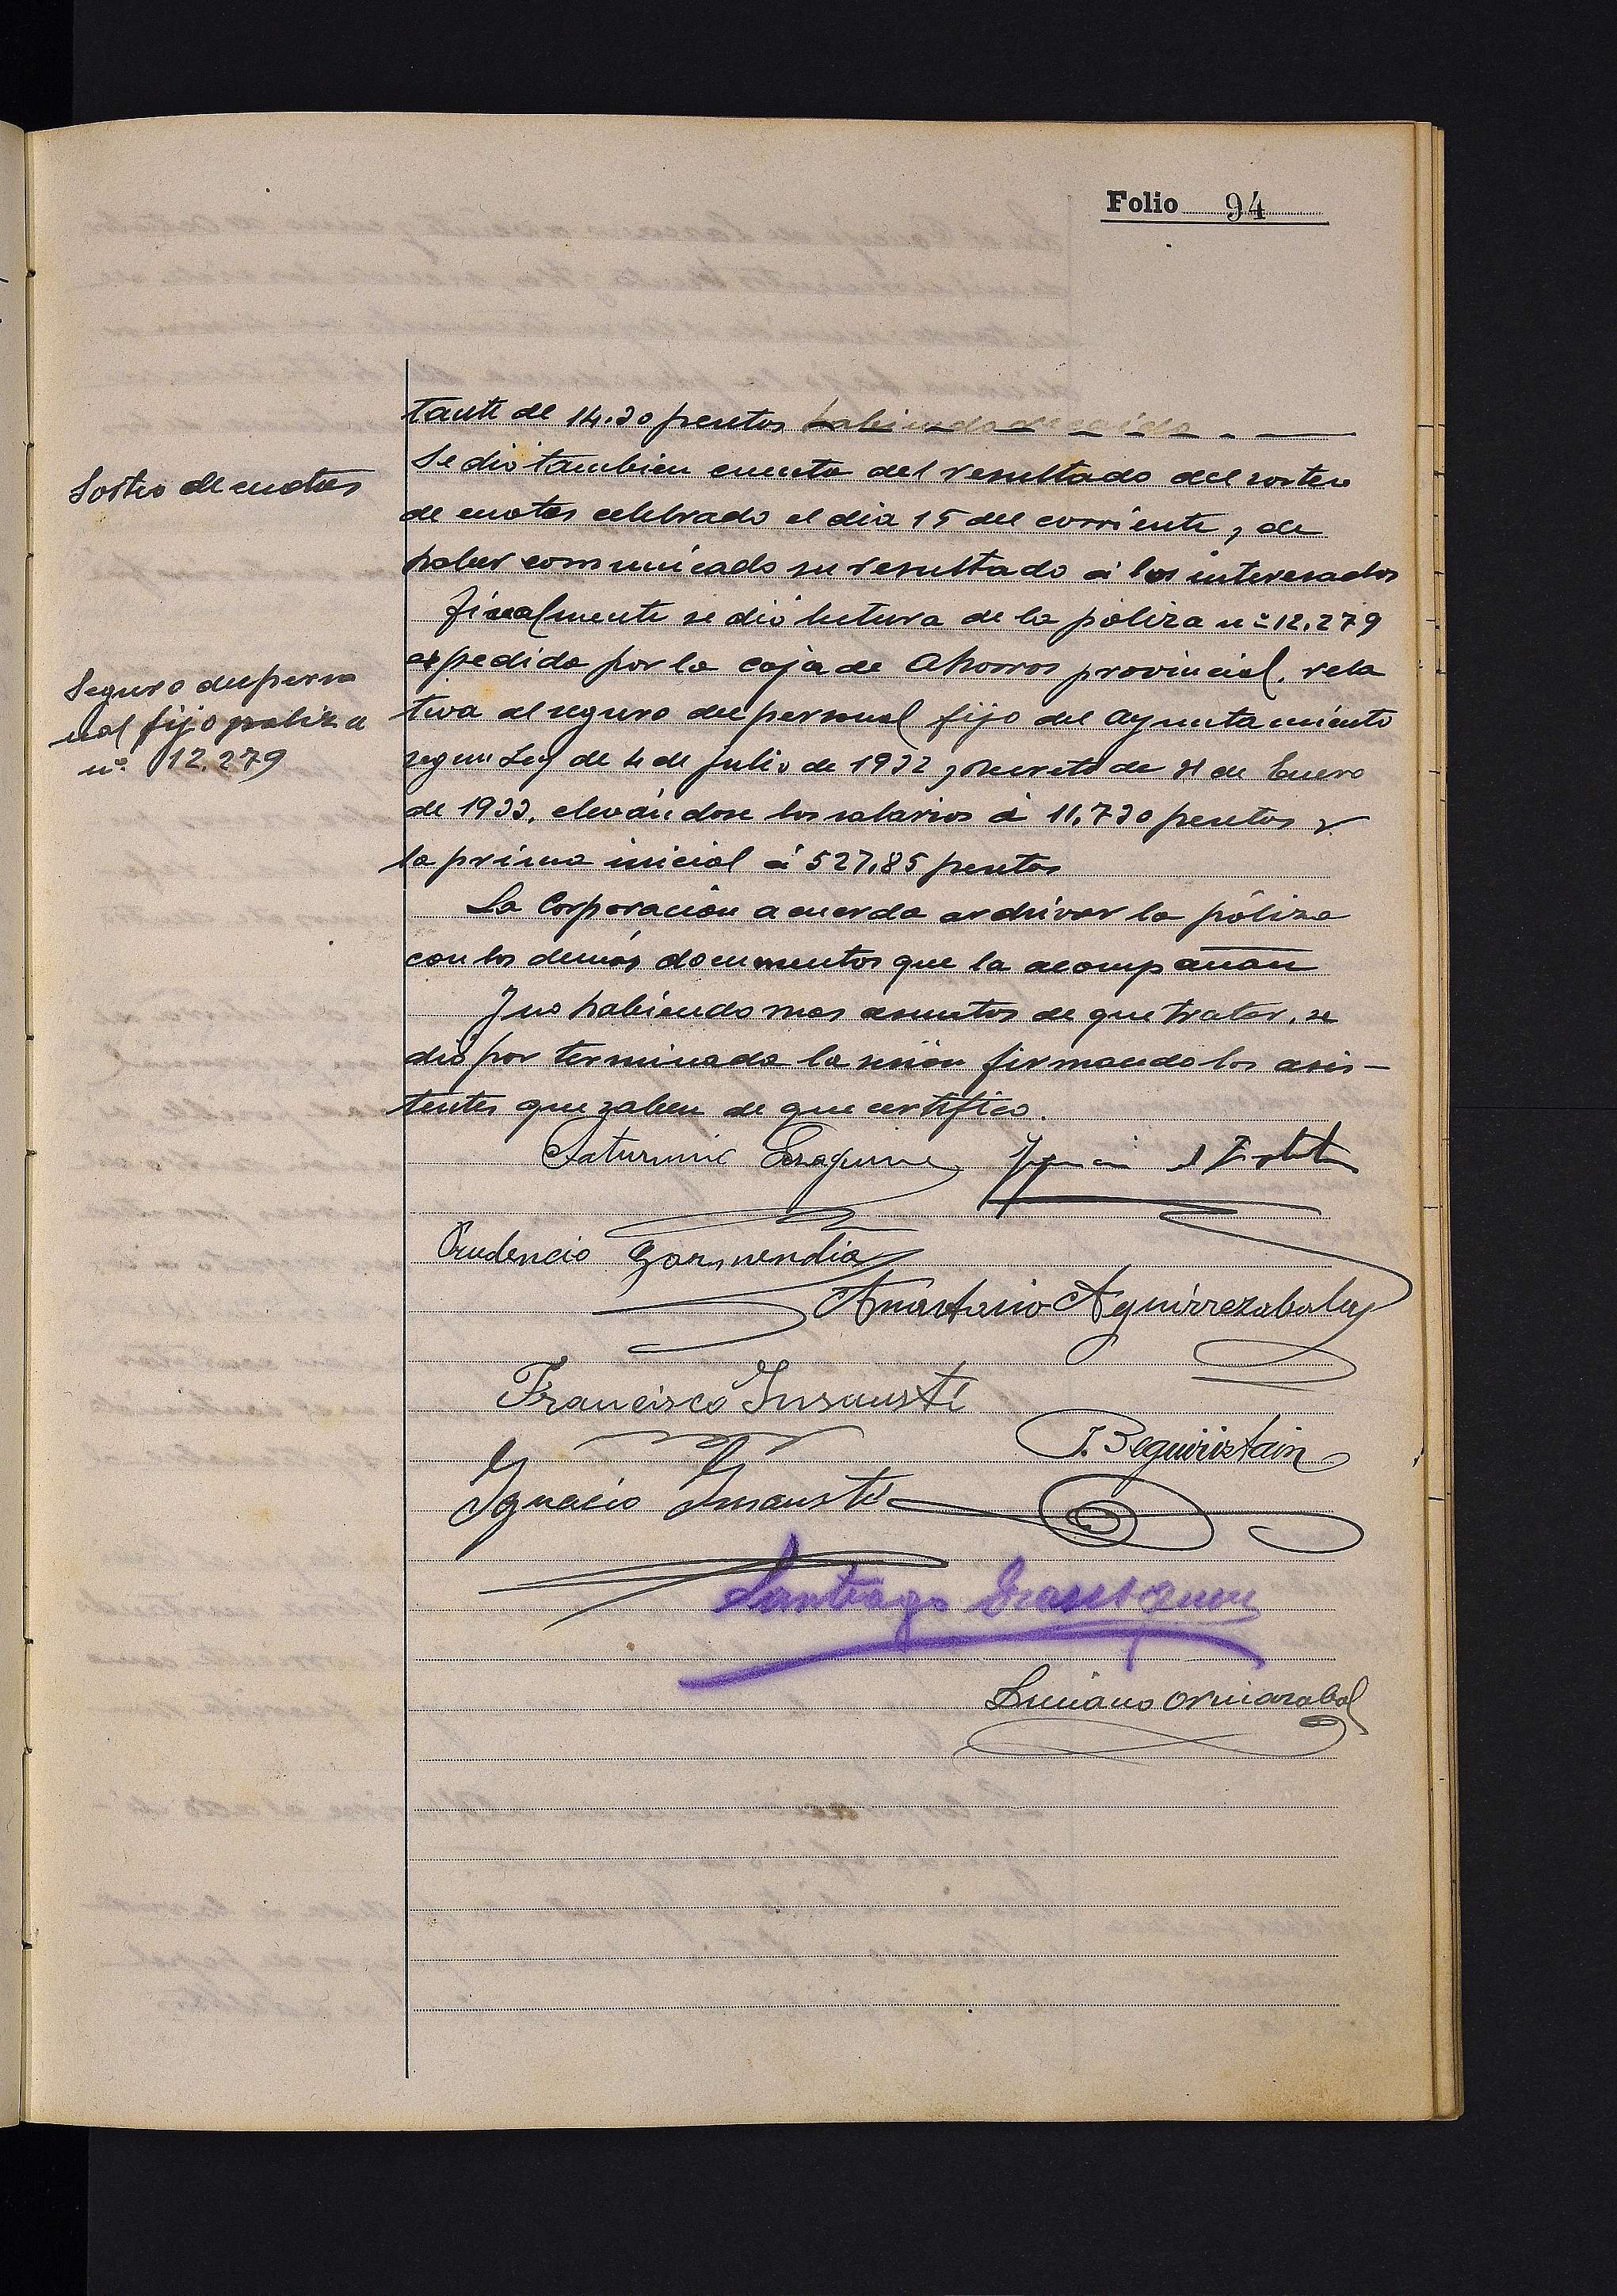 Folio 94
tante de 14.30 pesetas
Sorteo de cuotas
Se dió tambien cuenta del resultado del sorteo
de cuotas celebrado el dia 15 del corriente, de
haber comunicado su resultado á los interesados
Finalmente se dió lectura de la póliza nº 12.279
Seguro del perso
nal fijo poliza
nº 12.279
expedida por la caja de Ahorros provincial, rela
tiva al seguro del personal fijo del Ayuntamiento
segun Ley de 4 de julio de 1932 y Decreto de 31 de Enero
de 1933, elevándose los salarios á 11,730 pesetas y
la prima inicial á 527,85 pesetas
La Corporación acuerda archivar la póliza
con los demás documentos que la acompañan
Y no habiendo mas asuntos de que tratar, se
dió por terminada la sesión firmando los asis-
tentes que saben de que certifico.
Saturnino
Prudencio Garmendia
Anastasio Aguirrezabala
Francisco Insausti
J. Beguiristain
Ignacio Insausti
Santiago
Luciano Ormazabal